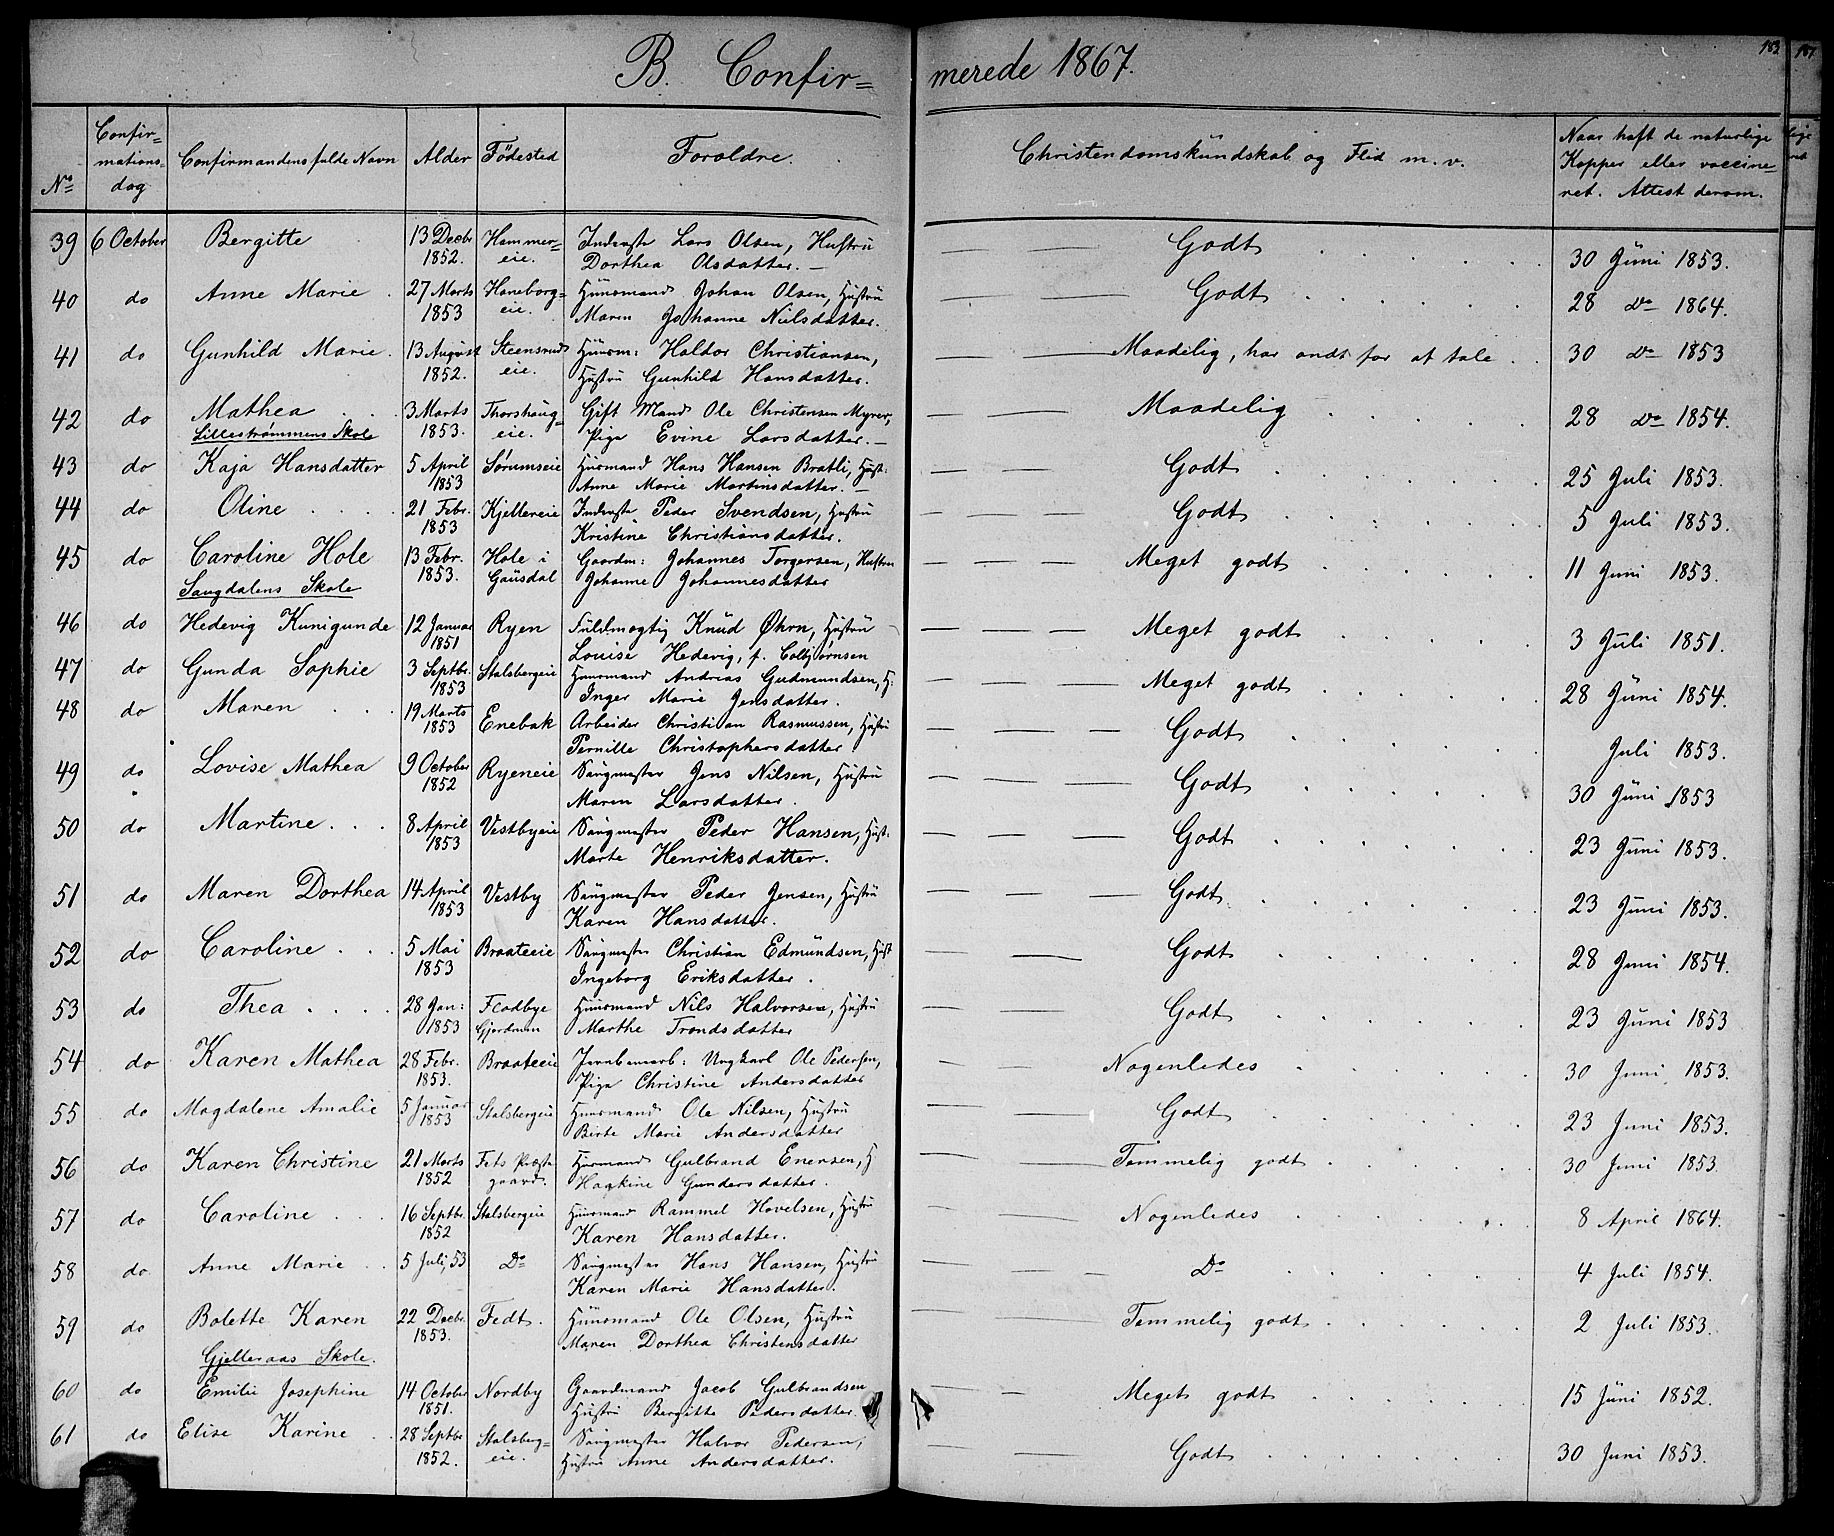 B. Confirmerede 1867.
183
187
No
Confirmationsdag
Confirmandens fulde Navn
Alder
Födested
Foroldre.
Christendomskundskab og Flid m. v.
Naar haft de naturlige Kopper eller vaccineret. Attest derom.
39 6 October Bergitte 13 Decbr 1852. Hammereie. Inderste Lars Olsen, Hustru Dorthea Olsdatter. — Godt 30 Juni 1853.
40 do Anne Marie 27 Marts 1853 Haneborgeie. Huusmand Johan Olsen, Hustru Maren Johanne Nielsdatter. Godt 28 Do 1864.
41 do Gunhild Marie 13 August 1852. Steensrudeie. Huusm: Haldor Christiansen, Hustru Gunhild Hansdatter. Maadelig, har ondt for at tale 30 Do 1853
42 do Mathea 3 Marts 1853. Thorshaugeie. Gift Mand Ole Christensen Myrer, Pige Evine Larsdatter. — Maadelig 28 Do 1854.
Lillestrømmens Skole
43 do Kaja Hansdatter 5 April 1853 Sørumseie Huusmand Hans Hansen Bratli, Hust: Anne Marie Martinsdatter. — Godt 25 Juli 1853.
44 do Oline 21 Febr. 1853 Kjellereie Inderste Peder Svendsen, Hustru Kristine Christiansdatter. Godt 5 Juli 1853.
45 do Caroline Hole 13 Febr. 1853. Hole i Gausdal Gaardm: Johannes Torgersen, Hustru Johanne Johannesdatter Meget godt 11 Juni 1853.
Saugdalens Skole
46 do Hedevig Kunigunde 12 Januar 1851 Ryen Fuldmægtig Knud Øhrn, Hustru Louise Hedevig, f. Colbjørnsen Meget godt 3 Juli 1851.
47 do Gunda Sophie 3 Septbr. 1853 Stalsbergeie Huusmand Andrias Gudmundsen, H: Inger Marie Jensdatter. Meget godt 28 Juni 1854.
48 do Maren 19 Marts 1853 Enebak Arbeider Christian Rasmussen, Hustru Pernille Christophersdatter Godt Juli 1853.
49 do Lovise Mathea 9 October 1852 Ryeneie Saugmester Jens Nilsen, Hustru Maren Larsdatter. Godt 30 Juni 1853
50 do Martine 8 April 1853 Vestbyeie Saugmester Peder Hansen, Hust. Marte Henriksdatter. Godt 23 Juni 1853.
51 do Maren Dorthea 14 April 1853 Vestby Saugmester Peder Jensen, Hustru Karen Hansdatter. Godt 23 Juni 1853.
52 do Caroline 5 Mai 1853 Braateeie Saugmester Christian Edmundsen, Hust Ingeborg Eriksdatter. Godt 28 Juni 1854.
53 do Thea 28 Jan: 1853 Flodbye Gjerdrum Huusmand Nils Halvorsen, Hustru Marthe Trondsdatter Godt 23 Juni 1853
54 do Karen Mathea 28 Febr. 1853. Braateeie Jernbanearb: Ungkarl Ole Pedersen, Pige Christine Andersdatter Nogenledes 30 Juni 1853.
55 do Magdalene Amalie 5 Januar 1853 Stalsbergeie Huusmand Ole Nilsen, Hustru Birte Marie Andersdatter Godt 23 Juni 1853.
56 do Karen Christine 21 Marts 1852 Fets Præstegaard. Huusmand Gulbrand Enersen, H Gundersdatter. Temmelig godt 30 Juni 1853.
57 do Caroline 16 Septbr. 1852 Stalsbergeie Huusmand Rammel Hovelsen, Hustru Karen Hansdatter. Nogenledes 8 April 1864.
58 do Anne Marie 5 Juli, 53 Do Saugmester Hans Hansen, Hustru Karen Marie Hansdatter. Do 4 Juli 1854.
59 do Bolette Karen 22 Decbr. 1853. Fedt. Huusmand Ole Olsen, Hustru Maren Dorthea Christensdatter Temmelig godt 2 Juli 1853.
Gjelleraas Skole.
60 do Emilie Josephine 14 October 1851. Nordby Gaardmand Jacob Gulbrandsen Hustru Bergitte Pedersdatter. Meget godt 15 Juni 1852.
61 do Elise Karine 28 Septbr 1852. Stalsbergeie. Saugmester Halvor Pedersen, Hustru Anne Andersdatter. Godt 30 Juni 1853.